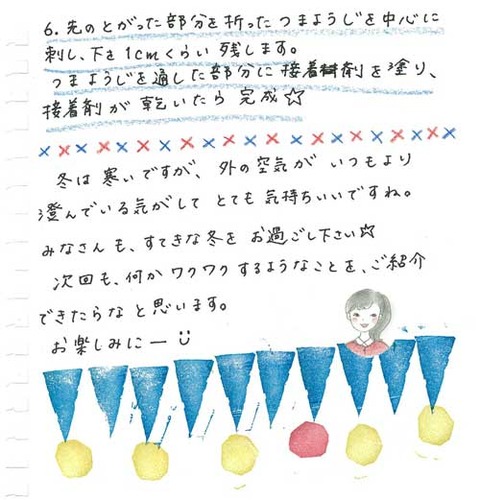 6. 先のとがった部分を折ったつまようじを中心に
刺し、下を1cmくらい残します。
つまようじを通した部分に接着剤を塗り、
接着剤が乾いたら完成☆
冬は寒いですが、外の空気がいつもより
澄んでいる気がしてとても気持ちいいですね。
みなさんも、すてきな冬をお過ごし下さい☆
次回も、何かワクワクするようなことを、ご紹介
できたらなと思います。
お楽しみにー